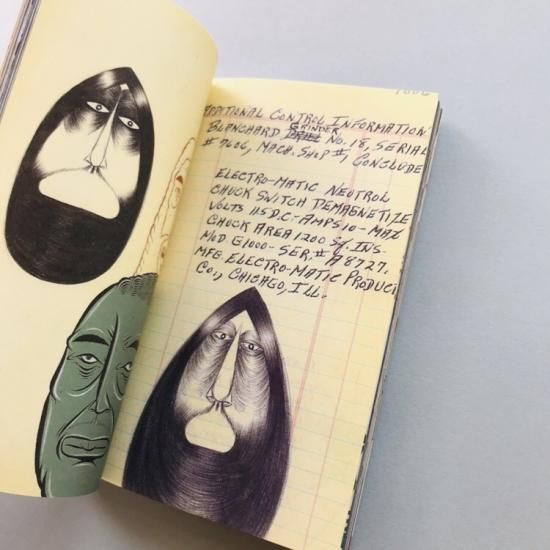 ADDITIONAL CONTROL INFORMATION
BLANCHARD GRINDER NO. 18, SERIAL
# 9606, MACH. SHOP #1, CONCLUDE
ELECTRO-MATIC NEUTROL
CHUCK SWITCH DEMAGNETIZE
VOLTS 115 D.C-AMPS 10 - MAX
CHUCK AREA 1200 SQ. INS.
MOD. G1000-SER.# A8727.
MFG. ELECTRO-MATIC PRODUCT
CO., CHICAGO, ILL.